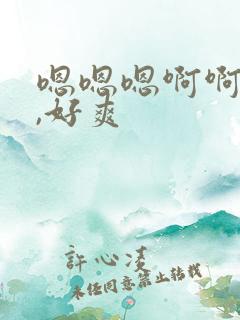 嗯嗯嗯啊啊
,好爽
許心凌
未任同意禁止转载